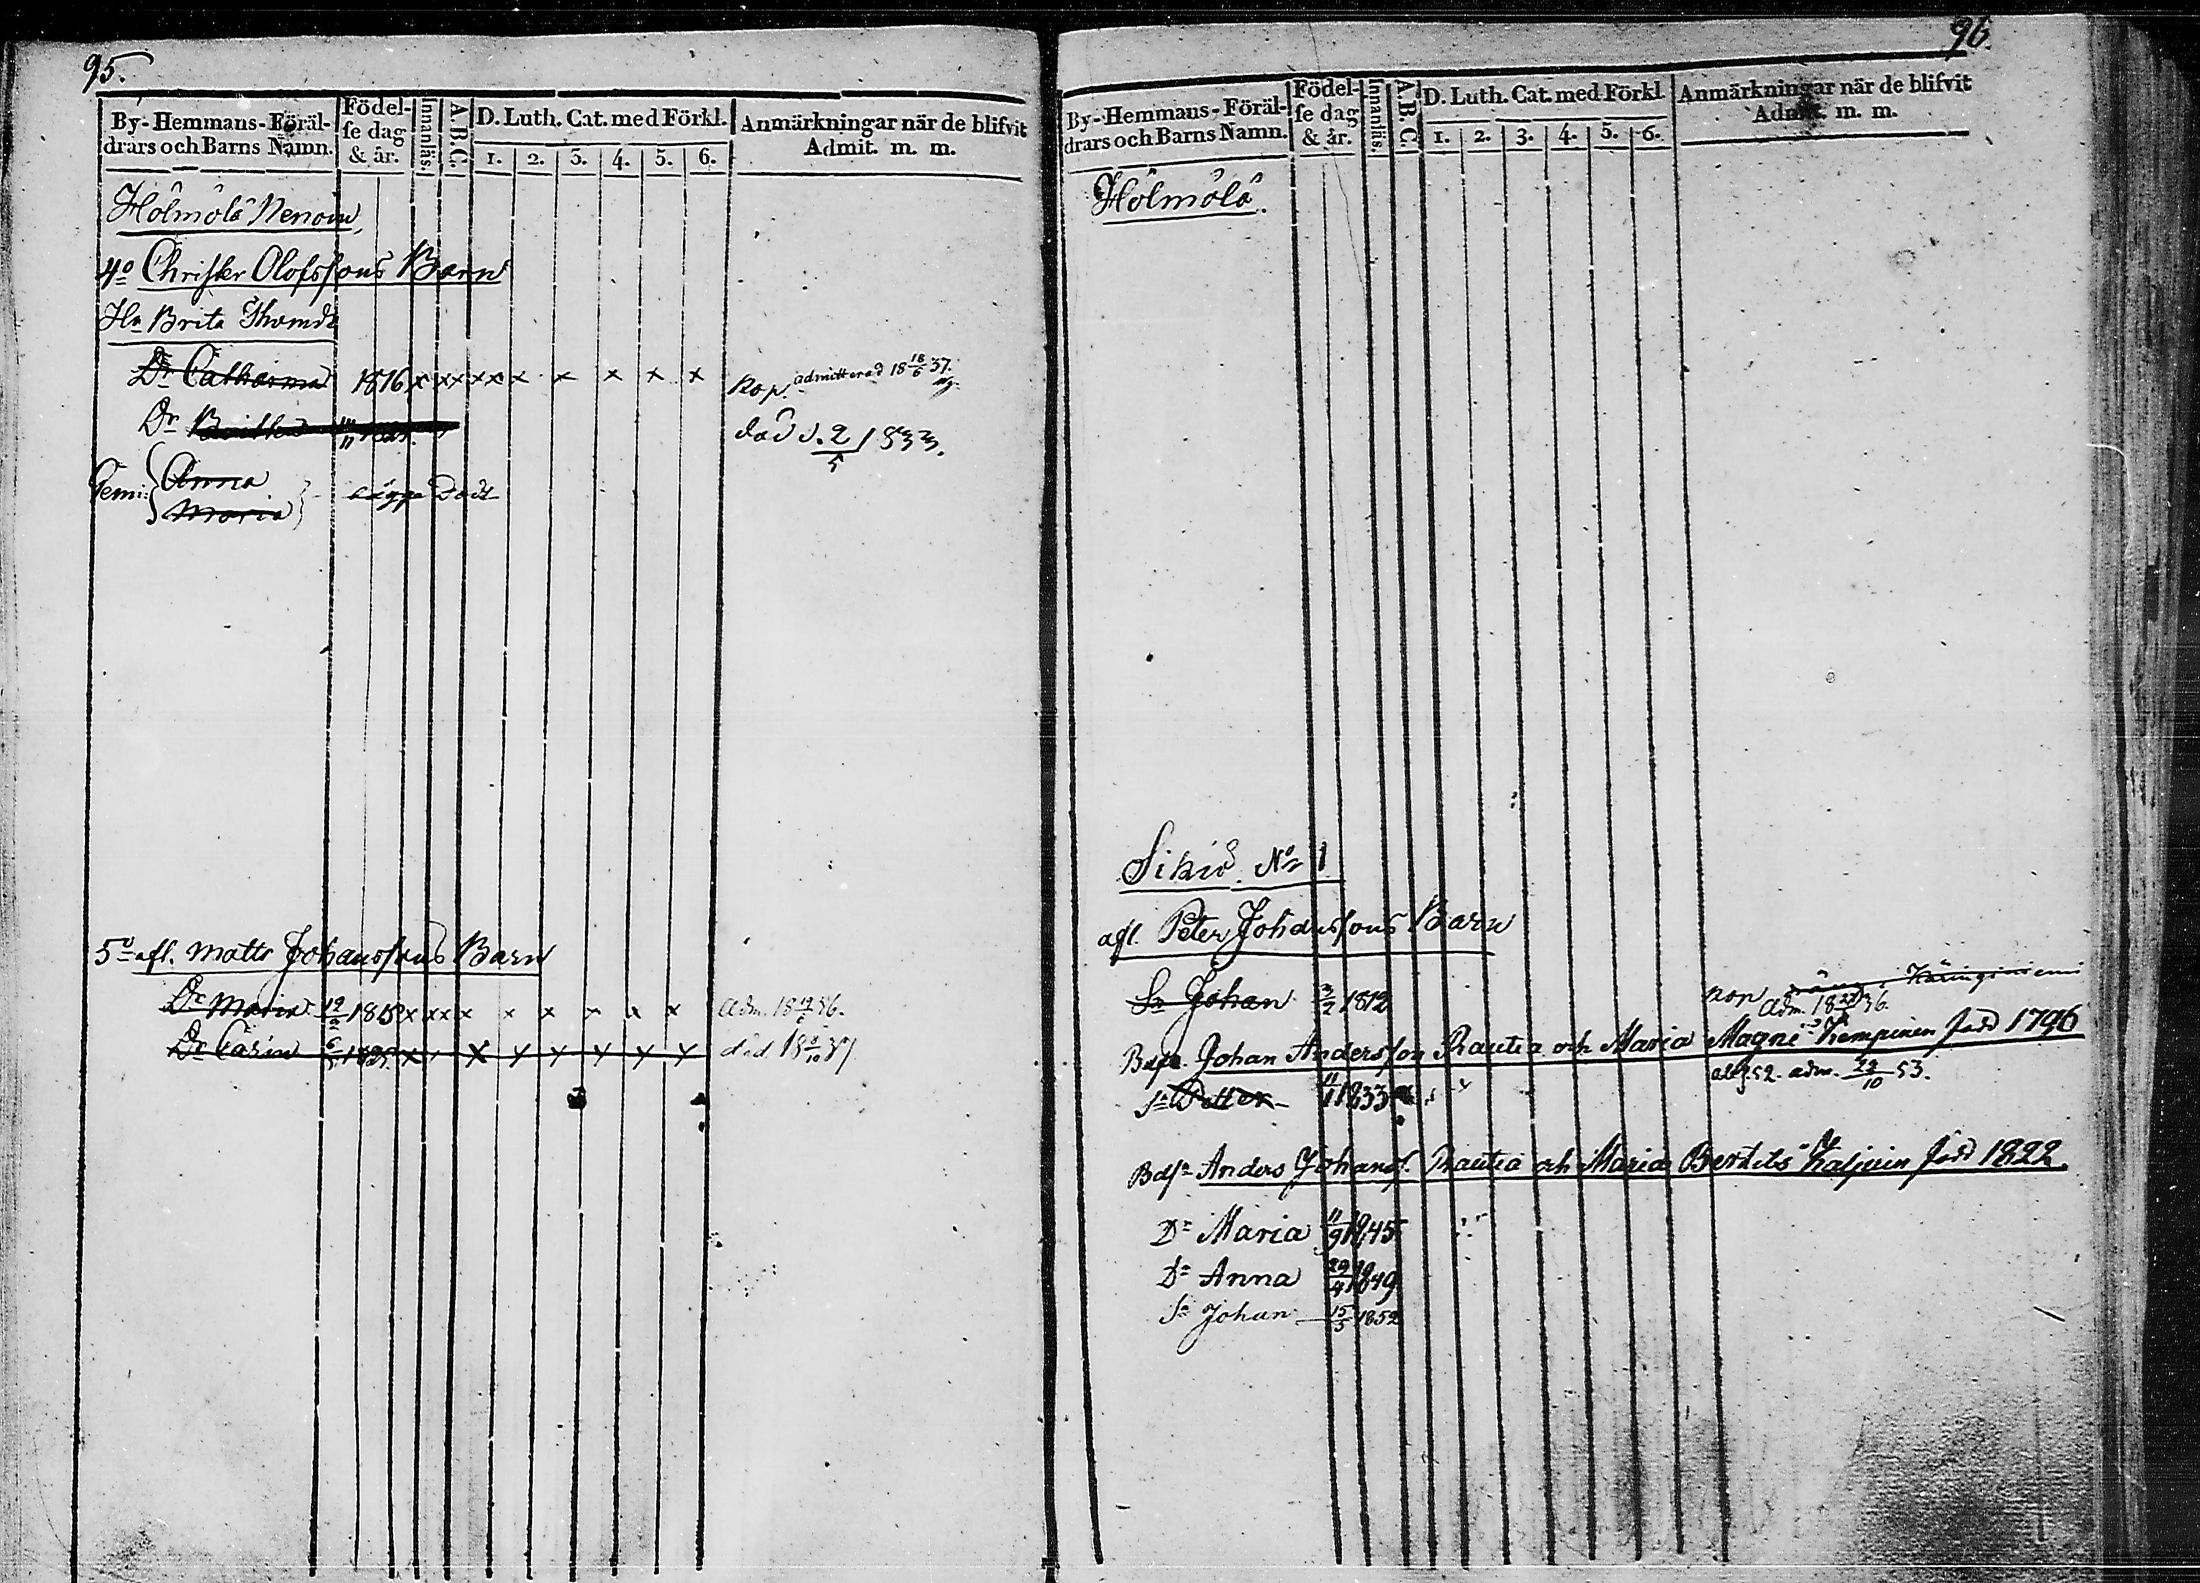 95.
By- Hemmans- Föräl-
drars och Barns Namn.
Födel-
se dag
& år.
Innanläs.
A.B.C.
D. Luth. Cat. med Förkl.
1. 2. 3. 4. 5. 6.
Anmärkningar när de blifvit
Admit. m. m.
Hölmölä Nenonen
4o Christer Olofssons Barn
Hu Brita Thomdr
Dr Catharina 1816 x xx xx x x x x x kop. admitterad 18 18/6 37.
Dr död d. 2/5 1833.
Gemi: { Anna
Maria } bägge Död
5o afl. Matts Johanssons Barn
Dr Maria 1818 x xx x x x x x x adm. 18 36.
Dr Carin 1825 x x y y y y y död 18 /10 37
96.
By- Hemmans- Föräl-
drars och Barns Namn.
Födel-
se dag
& år.
Innanläs.
A.B.C.
D. Luth. Cat. med Förkl
1. 2. 3. 4. 5. 6.
Anmärkningar när de blifvit
Admit. m. m.
Hölmölä
Sikiö No 1
afl. Peter Johanssons Barn
Sn Johan 3/2 1812 kop Käringiniemi
adm. 18 36.
Johan Andersson Rautia och Maria Magnid. Kempinen född 1796
Sn Petter 11/1 1833 abs. 52. adm. 22/10 53.
Bdsn Anders Johanss. Rautia och Maria Bertils Kaljuin född 1822.
Dr Maria 11/9 1845
Dr Anna 29/4 1849
Sn Johan 15/5 1852